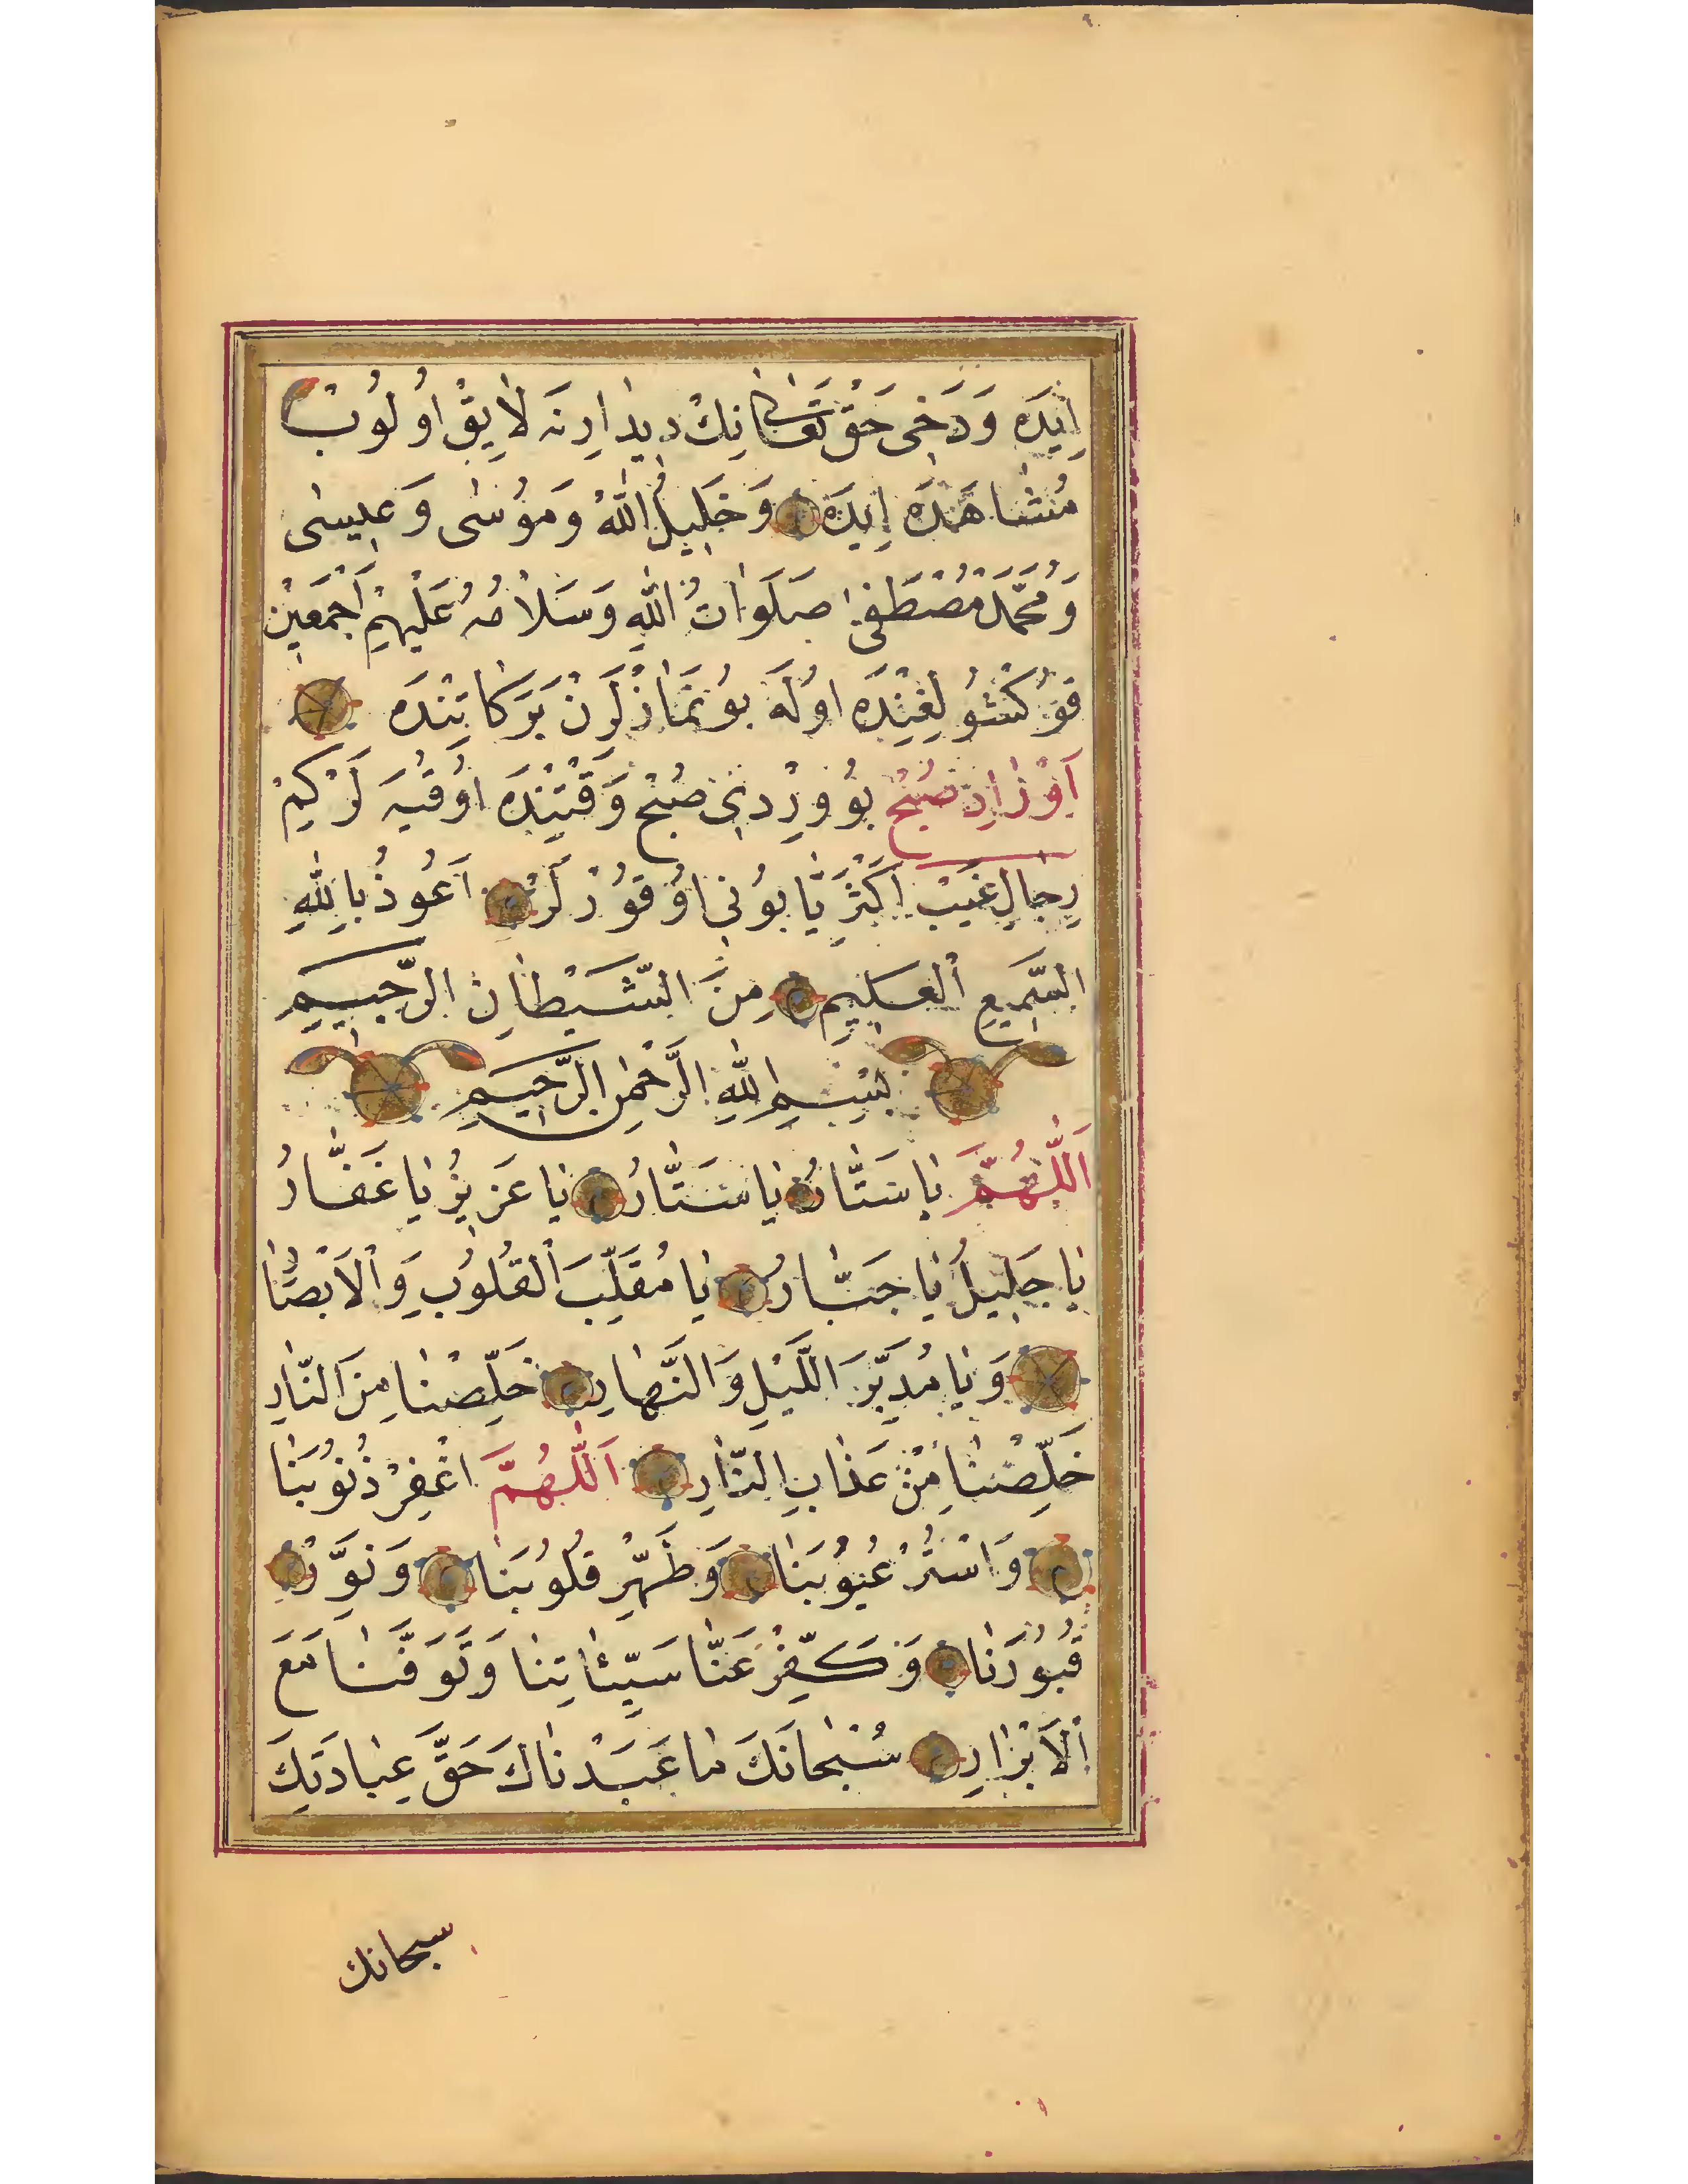 اِيدَه وَدَخِى حَقْ تَعَالٰى نِكْ دِيدَارِنَه لَايِقْ اُولُوبْ
مُشَاهَدَه اِيدَه وَخَلِيلُ اللّٰهْ وَمُوسٰى وَعِيسٰى
وَمُحَمَّدْ مُصْطَفٰى صَلَوَاتُ اللّٰهِ وَسَلَامُهُ عَلَيْهِمْ اَجْمَعِينْ
قُوكْشُولِغِنْدَه اُولَه بُو نَمَازْلَرِنْ بَرَكَاتِنْدَه
اَوْرَادِ صُبْحْ بُو وِرْدِى صُبْحْ وَقْتِنْدَه اُوقُيَه لَرْ كِيمْ
رِجَالِ غَيْبْ اَكْثَرِيَّا بُونِى اُوقُورْلَرْ اَعُوذُ بِاللّٰهِ
السَّمِيعِ الْعَلِيمِ مِنَ الشَّيْطَانِ الرَّجِيمِ
بِسْمِ اللّٰهِ الرَّحْمٰنِ الرَّحِيمِ
اَللّٰهُمَّ يَا سَتَّارُ يَا سَتَّارُ يَا عَزِيزُ يَا غَفَّارُ
يَا جَلِيلُ يَا جَبَّارُ يَا مُقَلِّبَ الْقُلُوبِ وَالْاَبْصَارِ
وَيَا مُدَبِّرَ اللَّيْلِ وَالنَّهَارِ خَلِّصْنَا مِنَ النَّارِ
خَلِّصْنَا مِنْ عَذَابِ النَّارِ اَللّٰهُمَّ اغْفِرْ ذُنُوبَنَا
وَاسْتُرْ عُيُوبَنَا وَطَهِّرْ قُلُوبَنَا وَنَوِّرْ
قُبُورَنَا وَكَفِّرْ عَنَّا سَيِّئَاتِنَا وَتَوَفَّنَا مَعَ
الْاَبْرَارِ سُبْحَانَكَ مَا عَبَدْنَاكَ حَقَّ عِبَادَتِكَ
سبحانك